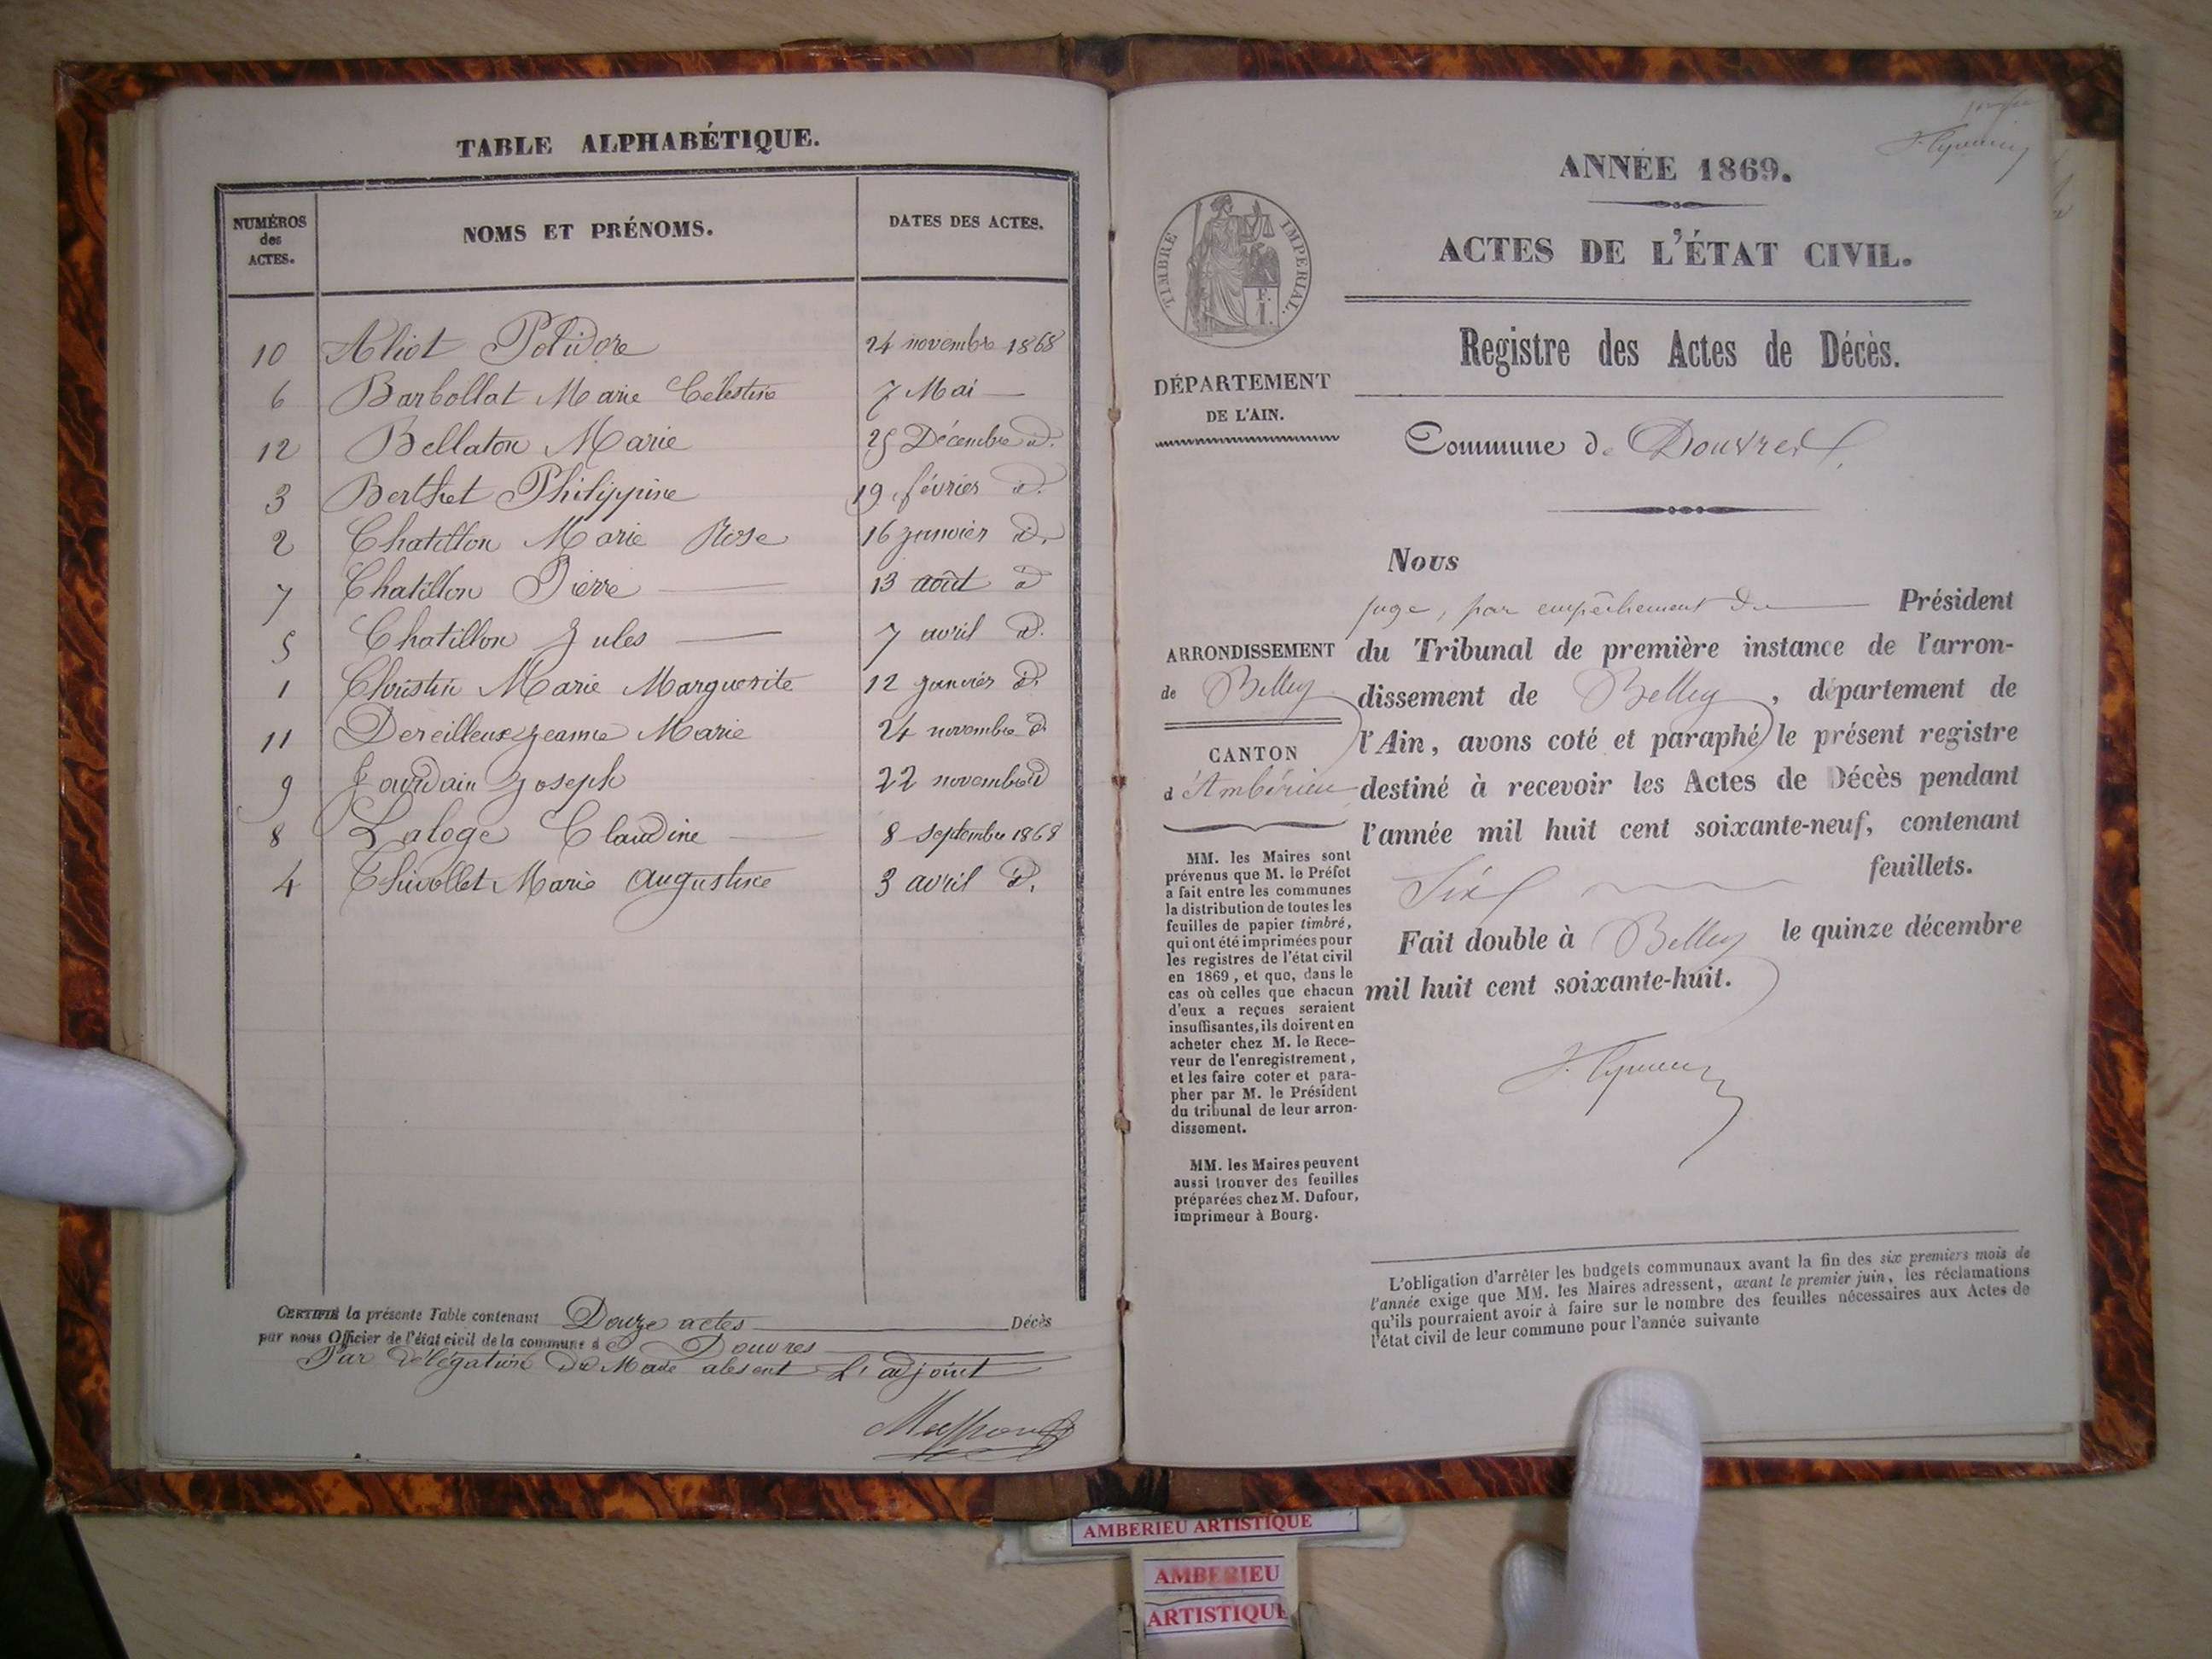 TABLE ALPHABÉTIQUE.
NUMÉROS des ACTES. NOMS ET PRÉNOMS. DATES DES ACTES.
10 Aliot Polidore 24 novembre 1868
6 Barbollat Marie Célestine 7 Mai —
12 Bellaton Marie 25 Décembre id.
3 Berthet Philippine 19 février id.
2 Chatillon Marie Rose 16 janvier id.
7 Chatillon Pierre — 13 août id
5 Chatillon Jules — 7 avril id.
1 Christin Marie Marguerite 12 janvier id.
11 Dereilleux Jeanne Marie 24 novembre id
9 Jourdain Joseph 22 novembre id
8 Laloge Claudine — 8 septembre 1868
4 Thivollet Marie Augustine 3 avril id.
CERTIFIÉ la présente Table contenant Douze actes Décès
par nous Officier de l'état civil de la commune d Douvres
Par délégation du Maire absent L'adjoint
ANNÉE 1869.
ACTES DE L'ÉTAT CIVIL.
TIMBRE IMPERIAL.
Registre des Actes de Décès.
DÉPARTEMENT
DE L'AIN.
Commune de Douvres
Nous
juge, par empêchement du Président
du Tribunal de première instance de l'arron-
dissement de Belley, département de
l'Ain, avons coté et paraphé le présent registre
destiné à recevoir les Actes de Décès pendant
l'année mil huit cent soixante-neuf, contenant
Six feuillets.
Fait double à Belley le quinze décembre
mil huit cent soixante-huit.
ARRONDISSEMENT
de Belley
CANTON
d'Ambérieu
MM. les Maires sont
prévenus que M. le Préfet
a fait entre les communes
la distribution de toutes les
feuilles de papier timbré,
qui ont été imprimées pour
les registres de l'état civil
en 1869, et que, dans le
cas où celles que chacun
d'eux a reçues seraient
insuffisantes, ils doivent en
acheter chez M. le Rece-
veur de l'enregistrement,
et les faire coter et para-
pher par M. le Président
du tribunal de leur arron-
dissement.
MM. les Maires peuvent
aussi trouver des feuilles
préparées chez M. Dufour,
imprimeur à Bourg.
L'obligation d'arrêter les budgets communaux avant la fin des six premiers mois de
l'année exige que MM. les Maires adressent, avant le premier juin, les réclamations
qu'ils pourraient avoir à faire sur le nombre des feuilles nécessaires aux Actes de
l'état civil de leur commune pour l'année suivante
AMBERIEU ARTISTIQUE
AMBERIEU
ARTISTIQUE